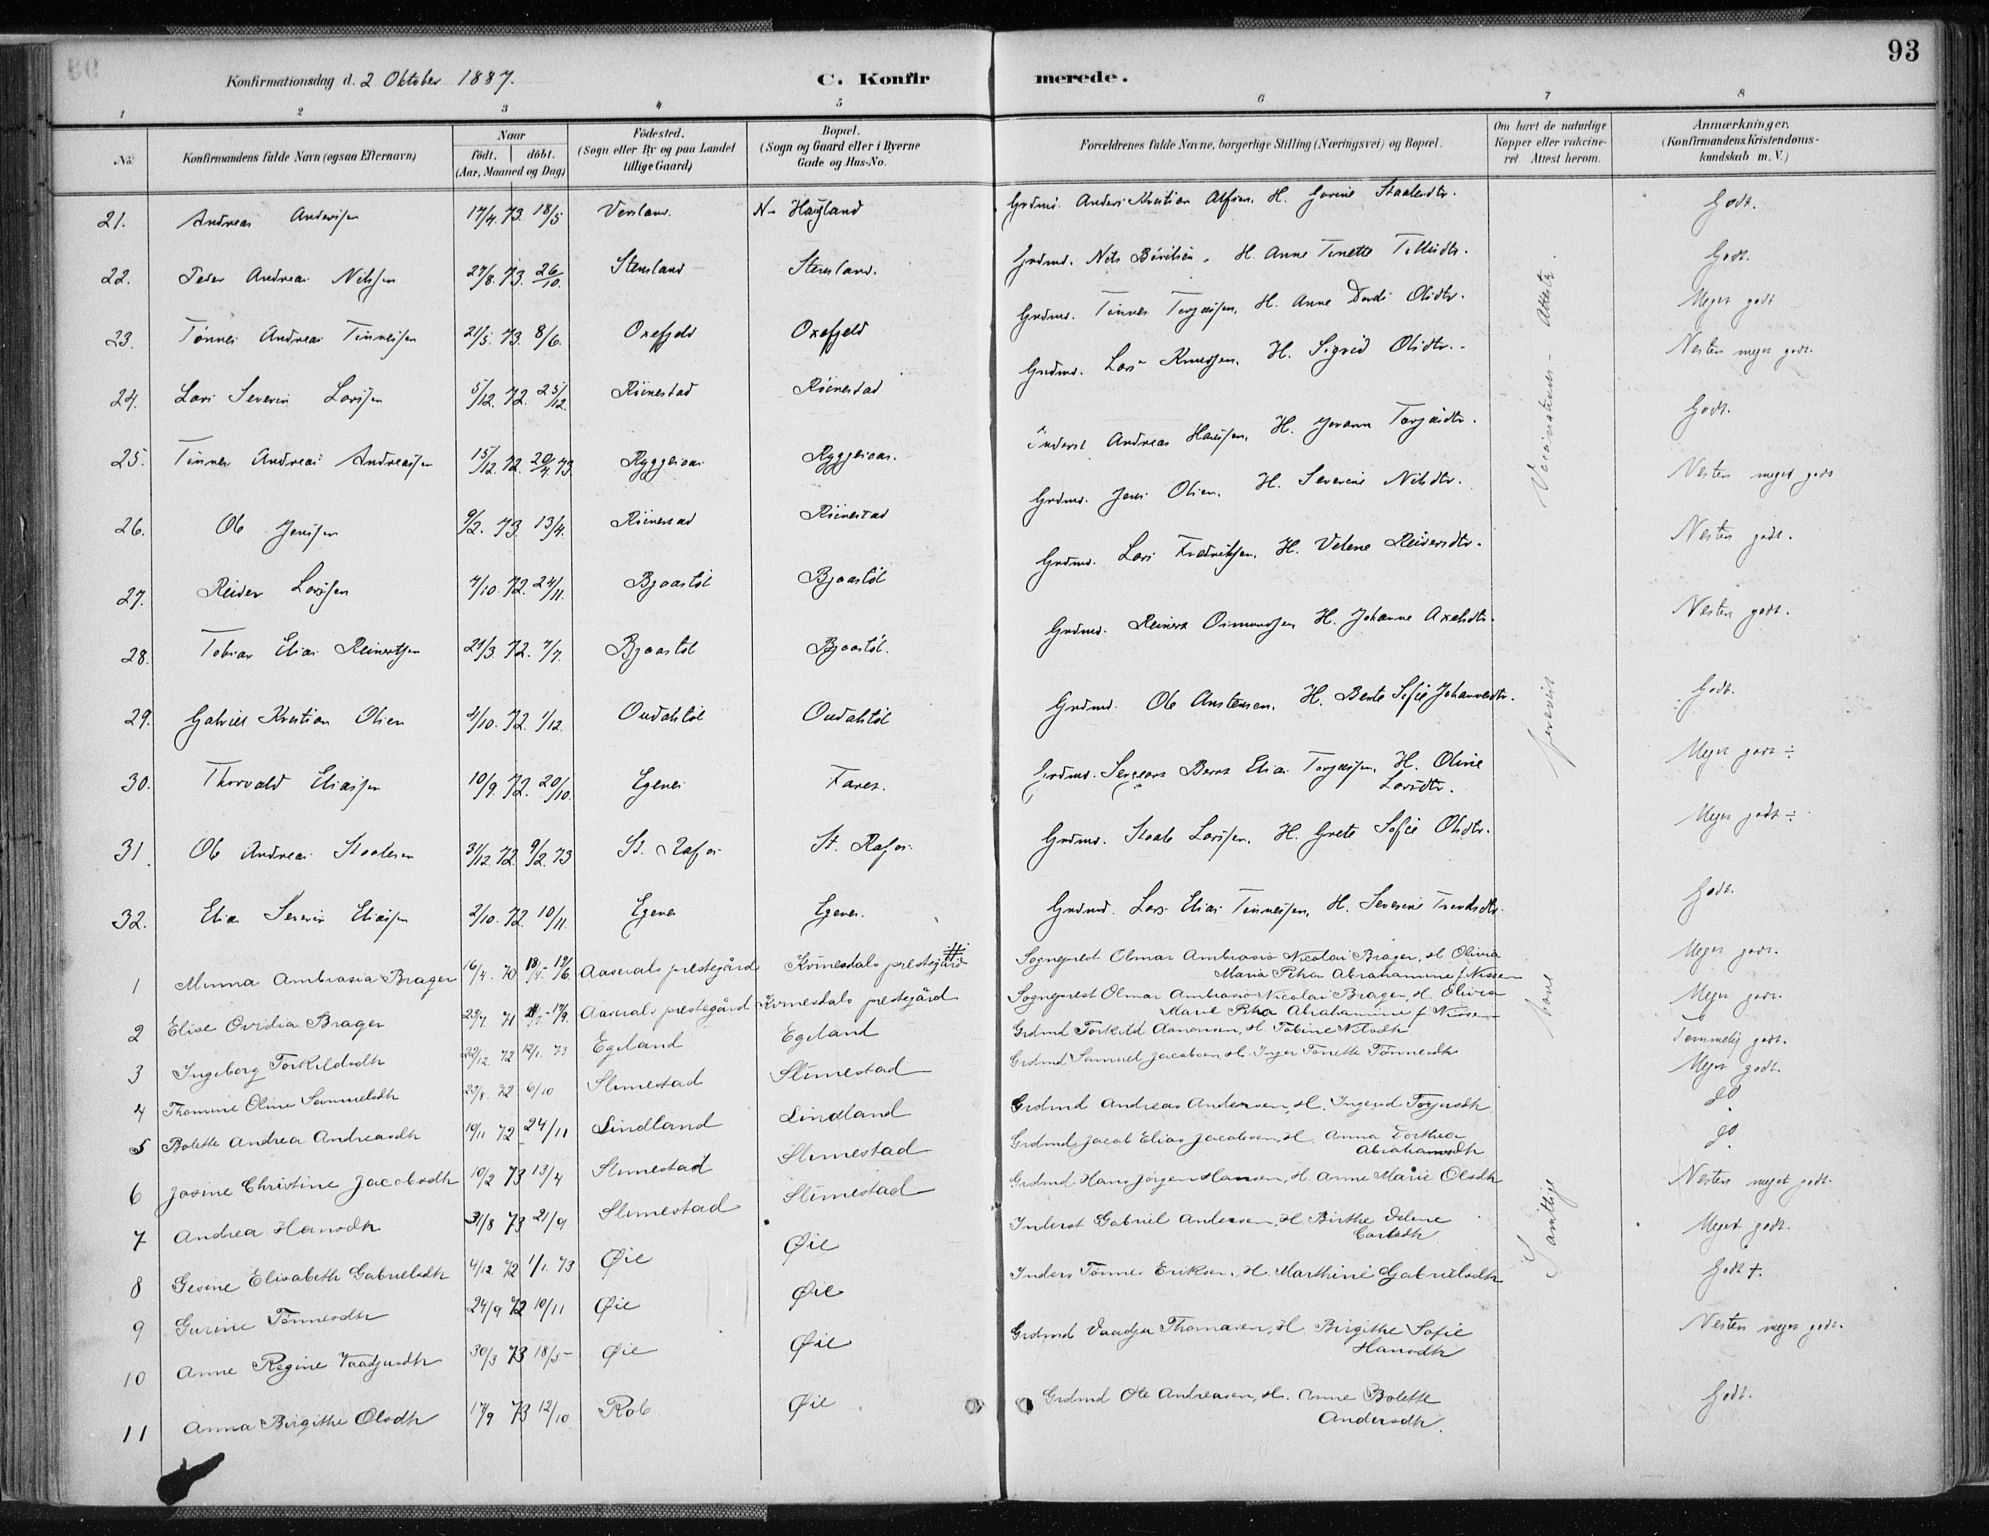 93
Konfirmationsdag d. 2 Oktober 1887. C. Konfirmerede.
1 2 3 4 5 6 7 8
No. Konfirmandens fulde Navn (ogsaa Efternavn) Naar födt. döbt. (Aar, Maaned og Dag) Födested. (Sogn eller By og paa Landet tillige Gaard) Bopæl. (Sogn og Gaard eller i Byerne Gade og Hus-No. Forældrenes fulde Navne, borgerlige Stilling (Næringsvei) og Bopæl. Om havt de naturlige Kopper eller vakcineret. Attest herom. Anmærkninger. (Konfirmandens Kristendomskundskab m. V.)
21. Andreas Andersen 17/4 73. 18/5 N- Haugland Grdmd. Anders Kristian H. Godt.
22. Peder Andreas Nilssen 27/8. 73. 26/10. Stensland Stensland. Grdmd. Nils H. Anne Tonette Godt.
23. Tønnes Andreas Tønnessen 21/5. 73. 8/6. Oxefjeld Oxefjeld Grdmd. Tønnes H. Anne Olsdtr. Meget godt
24. Lars Severin Larssen 5/12. 72. 25/12. Röinestad Röinestad Grdmd. Lars Knudsen, H. Sigrid Olsdtr. Nesten meget godt.
25. Tønnes Andreas Andreassen 15/12. 72. 20/4. 73 Inderst Andreas Hanssen, H. Godt.
26. Ole Jenssen 9/2. 73. 13/4. Röinestad Röinestad Grdmd. Jens Olsen. H. Severine Nilsdtr. Nesten meget godt
27. Reider Larssen 7/10. 72. 24/11. Bjaastöl Bjaastöl Grdmd. Lars Fredriksen, H. Velene Reidersdtr. Nesten godt.
28. Tobias Elias Reinertsen 21/3. 72. 7/7. Bjaastöl Bjaastöl. Grdmd. Reinert Osmundsen H. Johanne Axelsdtr. Nesten godt.
29. Gabriel Kristian Olsen 4/10. 72. 1/12. Oudalstöl Oudalstöl Grdmd. Ole H. Berte Sofie Johannesdtr. Godt.
30. Thorvald Eliassen 10/9. 72. 20/10. Egenes Faret. Grdmd. Sergeant Bernt Elias H. Oline Larsdtr. Meget godt ÷
31. Ole Andreas Staalesen 31/12. 72. 9/2. 73 St. Rafos St. Rafos Grdmd. Staale Larssen, H. Grete Sofie Olsdtr. Meget godt ÷
32. Elias Severin Eliassen 2/10. 72 10/11. Egenes Egenes. Grdmd. Lars Elias Tønnessen, H. Severine Godt.
1 Minna Ambrosia Brager 16/4. 70 18/4- 19/6. Aaserals prestegård Kvinesdals prestegård # Sogneprest Olmar Ambrosio Nicolai Brager, H Olivia Maria Petra Abrahamine f. Nissen Meget godt.
2 Elise Ovidia Brager 23/7 71 17/9. Aaserals prestegård Kvinesdals prestegård Sogneprest Olmar Ambrosio Nicolai Brager, H. Olivia Marie Petra Abrahamine f. Nissen Meget godt.
3 Ingeborg Torkildsdtr 22/12 72 12/1. 73 Egeland Egeland Grdmd Torkild Aanensen, H. Tobine Nilsdtr Temmelig godt.
4 Thomine Oline Samuelsdtr 23/8. 72 6/10 Slimestad Slimestad Grdmd Samuel Jacobsen H. Inger Tonette Tønnesdtr Meget godt.
5 Bolette Andrea Andreasdtr 19/11 72 24/11 Lindland Lindland Grdmd Andreas Andersen, H. Ingerid Torjusdtr do
6 Josine Christine Jacobsdtr 10/2 73 13/4 Slimestad Slimestad Grdmd Jacob Elias Jacobsen, H. Anna Dorthea Abrahamsdtr do
7 Andrea Hansdtr 31/8 73 21/9 Slimestad Slimestad Grdmd Hans Jørgen Hansen, H. Anne Marie Olsdtr Nesten meget godt.
8 Gesine Elisabeth Gabrielsdtr 4/12 72 1/1. 73 Øie Øie Inderst Gabriel Andersen, H. Birthe Velene Carlsdtr Meget godt.
9 Gurine Tønnesdtr 24/9 72 10/11 Øie Øie Inderst Tønnes Eriksen, H. Marthine Gabrielsdtr Godt +.
10 Anne Regine Vaadjusdtr 30/3 73 18/5 Øie Øie Grdmd Vaadju Thomasen, H. Birgithe Sofie Hansdtr Nesten meget godt.
11 Anna Birgithe Olsdtr 17/9 73 12/10 Rob Øie Grdmd Ole Andreasen, H. Anne Bolette Andersdtr. Godt.
Samtlige have forevist Vaccinations-Attester.